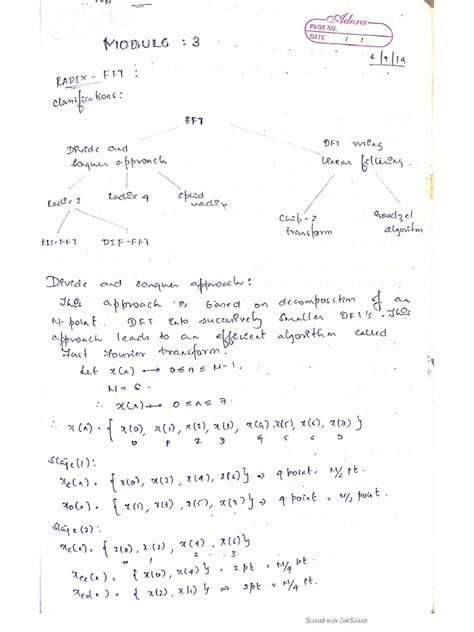 Adora
PAGE NO.
DATE / /
MODULE : 3
6/9/19
RADIX - FFT :
Classifications :
FFT
Divide and
Conquer approach
DFT using
linear filtering
Radix 2
Radix 4
Split
radix
Chirp-Z
transform
Goertzel
algorithm
DIT-FFT
DIF-FFT
Divide and conquer approach :
This approach is based on decomposition of an
N-point. DFT into successively smaller DFT's. This
approach leads to an efficient algorithm called
Fast Fourier transform.
Let x(n) → 0≤n≤N-1.
N = 8.
∴ x(n) → 0≤n≤7.
∴ x(n) = { x(0), x(1), x(2), x(3), x(4), x(5), x(6), x(7) }
0 1 2 3 4 5 6 7
Stage (1) :
xe(n) = { x(0), x(2), x(4), x(6) } ⇒ 4 point = N/2 pt.
xo(n) = { x(1), x(3), x(5), x(7) } ⇒ 4 point = N/2 point.
Stage (2) :
xe(n) = { x(0), x(2), x(4), x(6) }
0 1 2 3
xee(n) = { x(0), x(4) } = 2pt = N/4 pt.
xeo(n) = { x(2), x(6) } ⇒ 2pt = N/4 pt.
Scanned with CamScanner